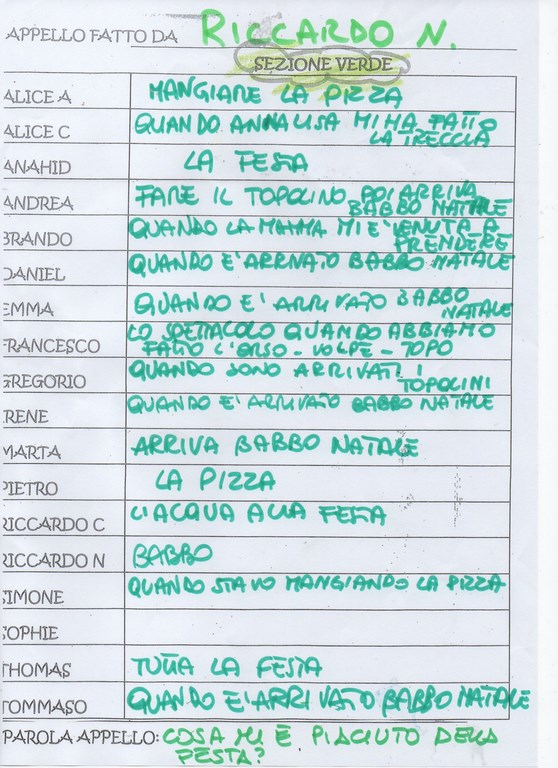 APPELLO FATTO DA RICCARDO N.
SEZIONE VERDE
ALICE A MANGIARE LA PIZZA
ALICE C QUANDO ANNALISA MI HA FATTO
LA TRECCIA
ANAHID LA FESTA
ANDREA FARE IL TOPOLINO POI ARRIVA
BABBO NATALE
BRANDO QUANDO LA MAMMA MI E' VENUTA A
PRENDERE
DANIEL QUANDO E' ARRIVATO BABBO NATALE
EMMA QUANDO E' ARRIVATO BABBO
NATALE
FRANCESCO LO SPETTACOLO QUANDO ABBIAMO
FATTO L'ORSO - VOLPE - TOPO
GREGORIO QUANDO SONO ARRIVATI I
TOPOLINI
IRENE QUANDO E' ARRIVATO BABBO NATALE
MARTA ARRIVA BABBO NATALE
PIETRO LA PIZZA
RICCARDO C L'ACQUA ALLA FESTA
RICCARDO N BABBO
SIMONE QUANDO STAVO MANGIANDO LA PIZZA
SOPHIE
THOMAS TUTTA LA FESTA
TOMMASO QUANDO E' ARRIVATO BABBO NATALE
PAROLA APPELLO: COSA MI È PIACIUTO DELLA
FESTA?